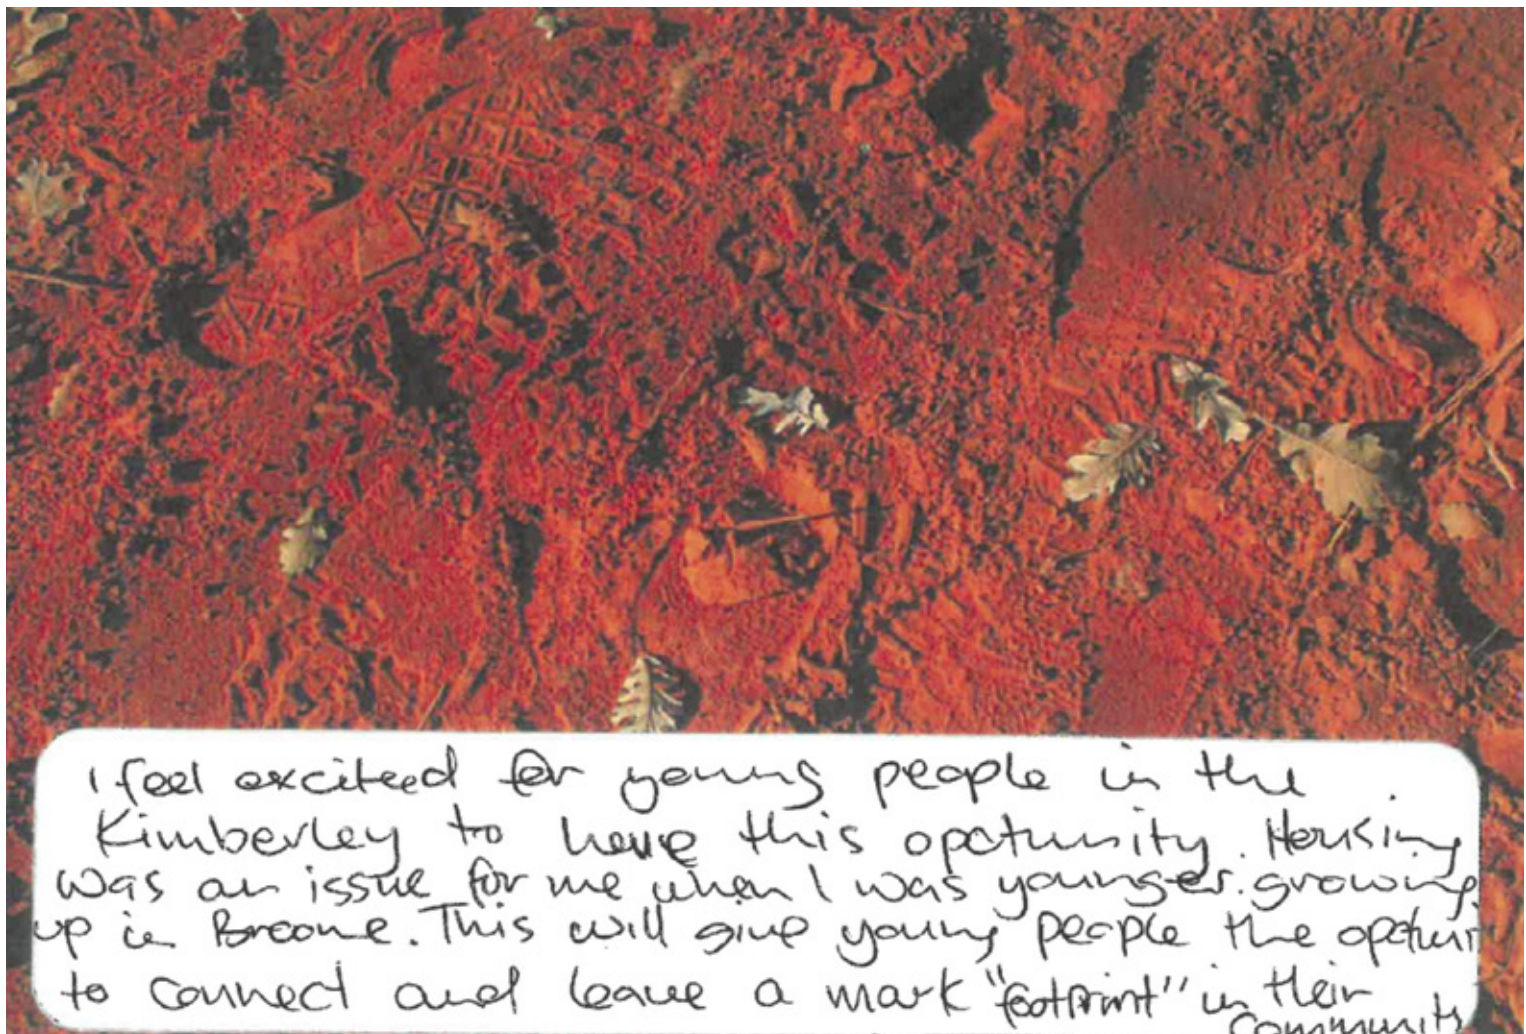 I feel excited for young people in the
Kimberley to have this opctunity. Housing
was an issue for me when I was younger growing
up in Broome. This will give young people the opctuni
to connect and leave a mark "footprint" in their
community